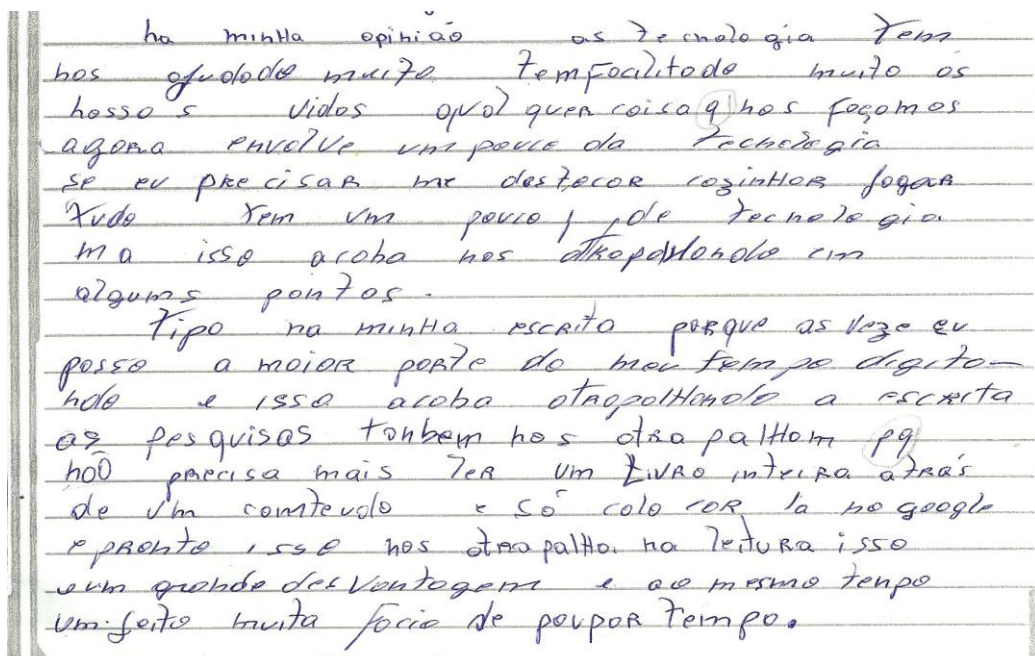 na minha opinião as tecnologia tem
nos ajudado muito tem facilitado muito os
nossos vidas qualquer coisa q nos façamos
agora envolve um pouco da tecnologia
se eu precisar me destacar cozinhar jogar
tudo tem um pouco, de tecnologia
ma isso acaba nos atrapalhando em
algums pontos.
Tipo na minha escrita porque as veze eu
passo a maior parte do meu tempo digita-
ndo e isso acaba atrapalhando a escrita
as pesquisas tanbem nos atrapalham pq
não precisa mais ler um livro inteira atrás
de um comteudo e só colocar la no google
e pronto isso nos atrapalha na leitura isso
e um grande desvantagem e ao mesmo tenpo
um jeito muita facio de poupar tempo.